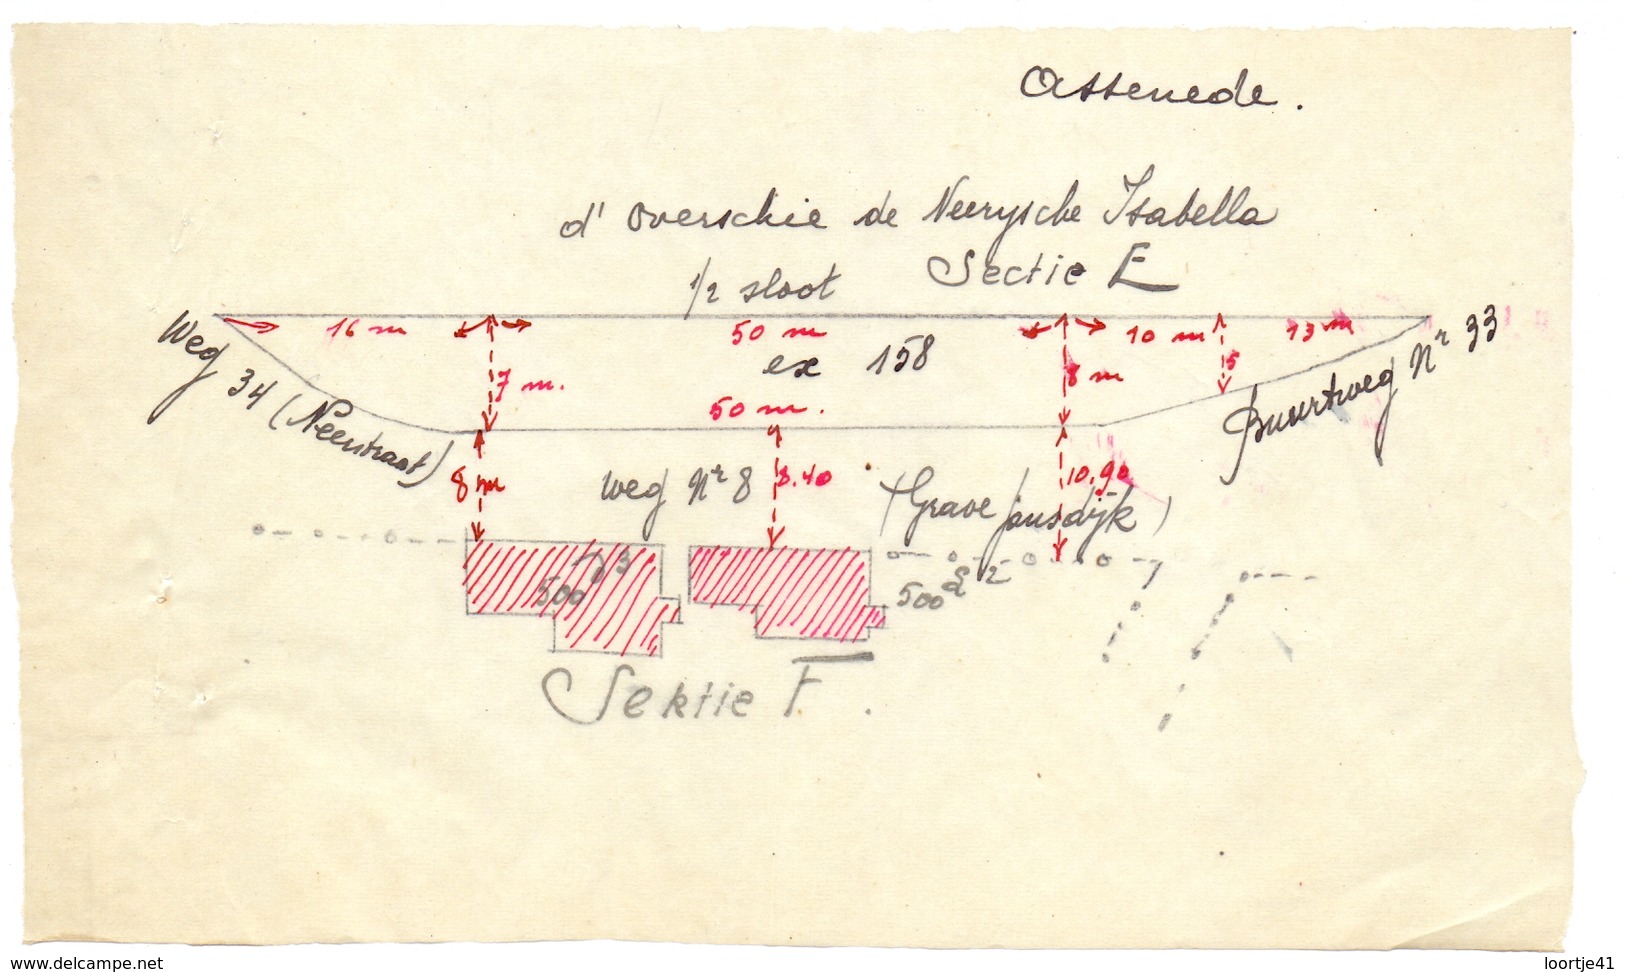 Assenede.
d' Overschie de Neerysche Isabella
1/2 sloot Sectie E
16 m 50 m 10 m 13 m
Weg 34 (Neerstraat)
7 m. ex 158 8 m 5
Buurtweg Nr 33
50 m.
8 m weg Nr 8 8.40 (Grave Jansdijk) 10.90
500 500
Sektie F.
www.delcampe.net loortje41